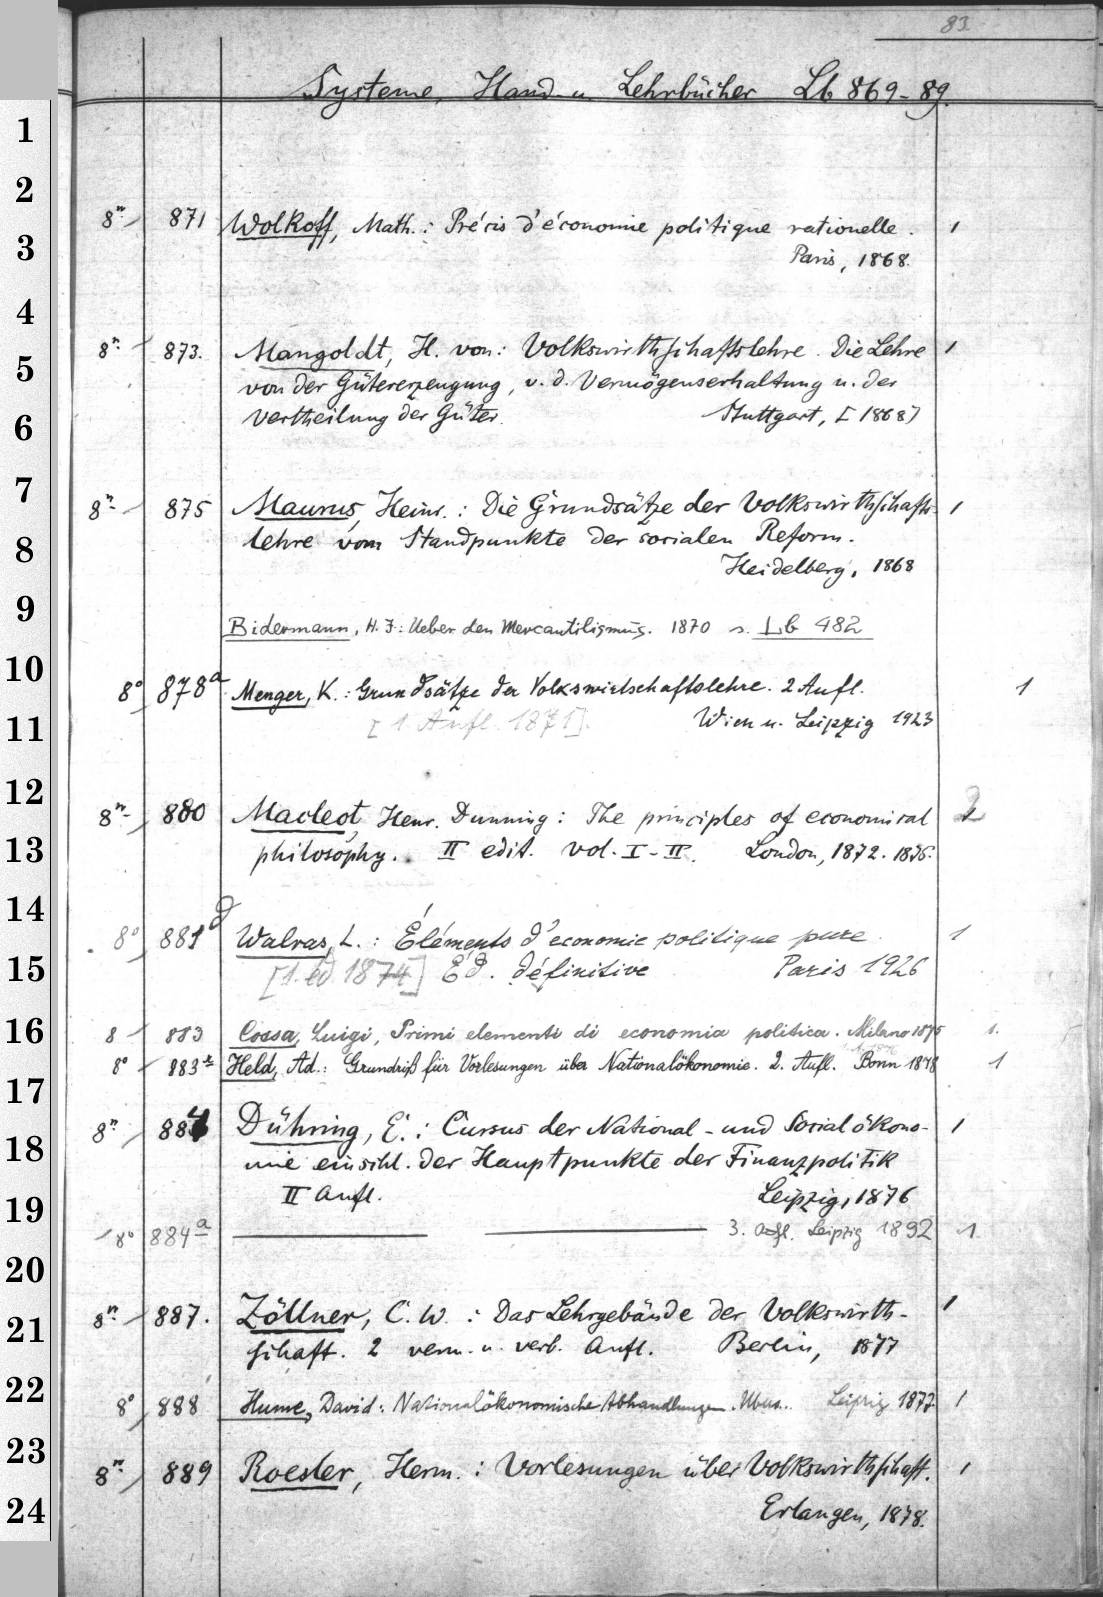 83
Systeme, Hand- u. Lehrbücher Lb 869-89.
1
2
8° 871 Wolkoff, Math.: Précis d'économie politique rationelle. 1
3
Paris, 1868.
4
8° 873. Mangoldt, H. von: Volkswirthschaftslehre. Die Lehre 1
5
von der Gütererzeugung, v. d. Vermögenserhaltung u. der
6
Vertheilung der Güter. Stuttgart, [1868]
7
8° 875 Maurus, Heinr.: Die Grundsätze der Volkswirthschafts- 1
8
lehre vom Standpunkte der socialen Reform.
Heidelberg, 1868
9
Bidermann, H. J.: Ueber den Mercantilismus. 1870 s. Lb 482
10
8° 878a Menger, K.: Grundsätze der Volkswirtschaftslehre. 2 Aufl. 1
11
[1 Aufl. 1871]. Wien u. Leipzig 1923
12
8° 880 Macleot, Henr. Dunning: The principles of economical 2
13
philosophy. II edit. vol. I-II. London, 1872. 1875.
14
8° 881d Walras, L.: Éléments d'economie politique pure. 1
15
[1. éd 1874] Éd. définitive Paris 1926
16
8 883 Cossa, Luigi, Primi elementi di economia politica. Milano 1875 1.
8° 883a Held, Ad.: Grundriß für Vorlesungen über Nationalökonomie. 2. Aufl. Bonn 1878 1
17
8° 884 Dühring, E.: Cursus der National- und Socialökono- 1
18
mie einschl. der Hauptpunkte der Finanzpolitik
19
II Aufl. Leipzig, 1876
8° 884a 3. Aufl. Leipzig 1892 1
20
8° 887. Zöllner, C. W.: Das Lehrgebäude der Volkswirth- 1
21
schaft. 2 verm. u. verb. Aufl. Berlin, 1877
22
8° 888 Hume, David: Nationalökonomische Abhandlungen. Leipzig 1877 1
23
8° 889 Roesler, Herm.: Vorlesungen über Volkswirthschaft. 1
24
Erlangen, 1878.